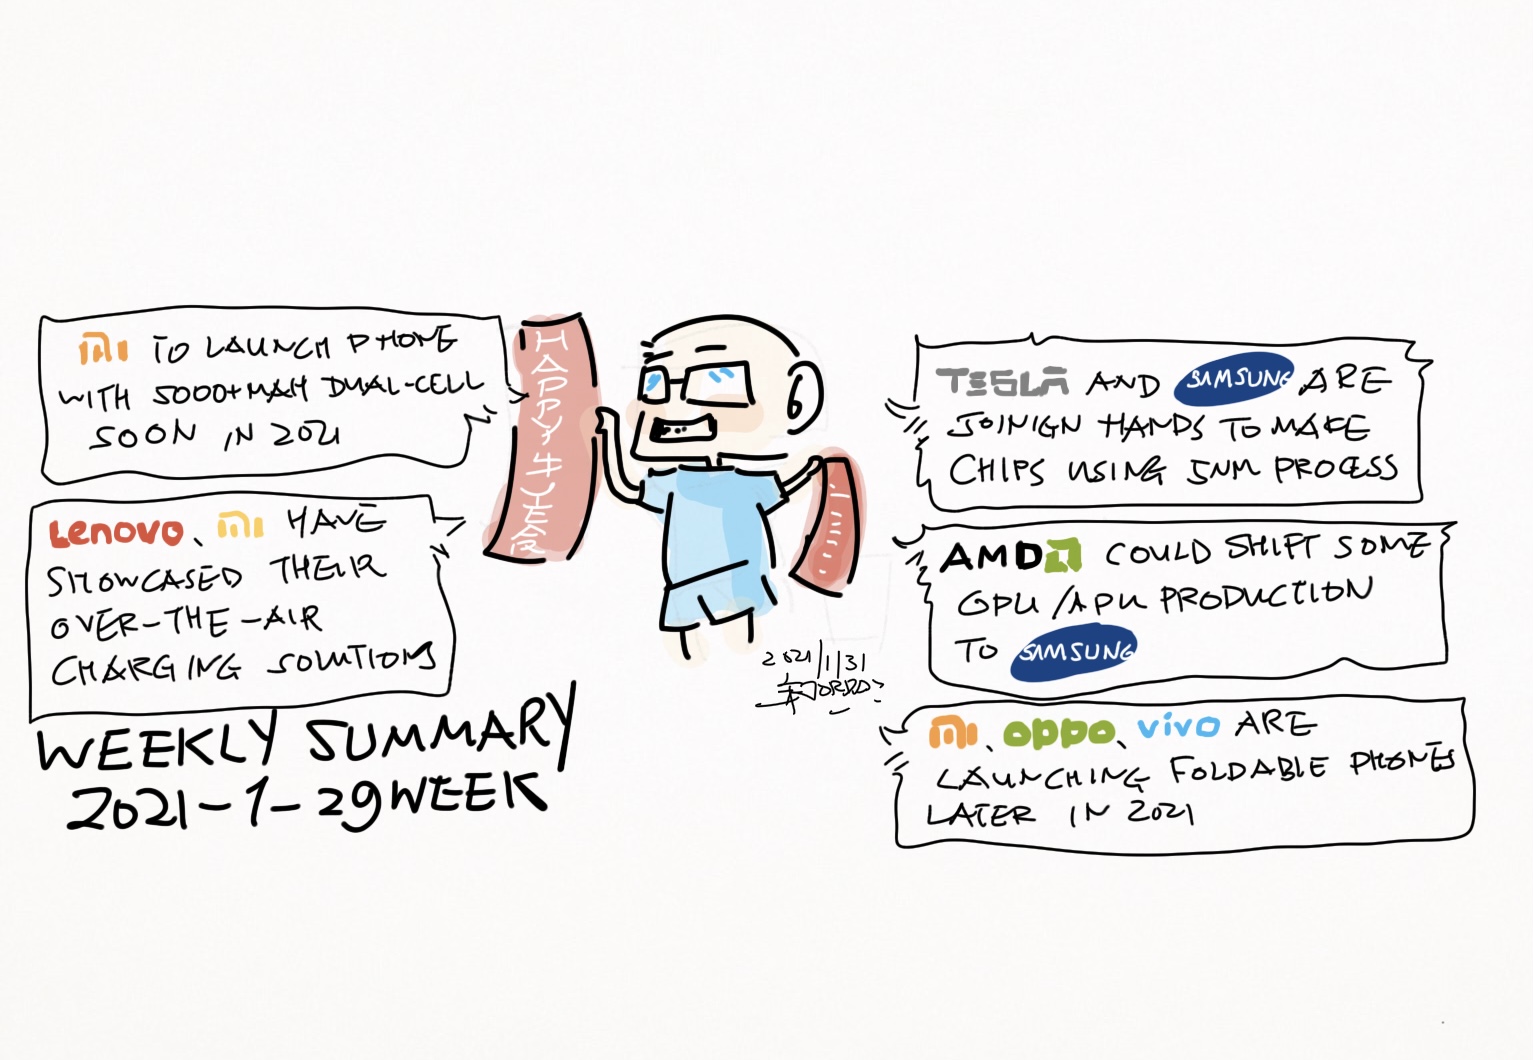 mi TO LAUNCH PHONE
WITH 5000+MAH DUAL-CELL
SOON IN 2021
Lenovo、mi HAVE
SHOWCASED THEIR
OVER-THE-AIR
CHARGING SOLUTIONS
WEEKLY SUMMARY
2021-1-29WEEK
HAPPY牛YEAR
2021/1/31
TESLA AND SAMSUNG ARE
JOINIGN HANDS TO MAKE
CHIPS USING 5NM PROCESS
AMD COULD SHIFT SOME
GPU/APU PRODUCTION
TO SAMSUNG
mi、oppo、vivo ARE
LAUNCHING FOLDABLE PHONES
LATER IN 2021